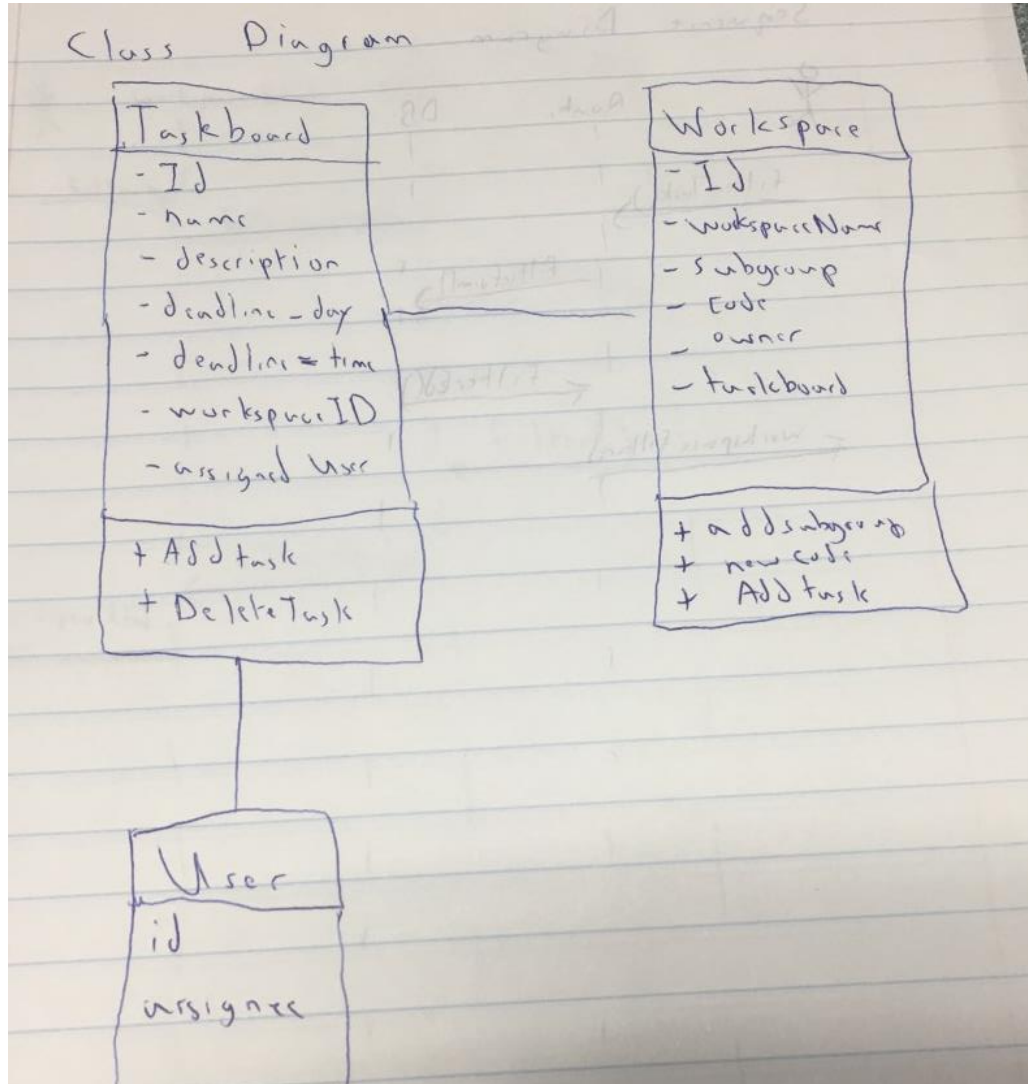 Class Diagram
Taskboard
- Id
- name
- description
- deadline_day
- deadline = time
- workspaceID
- assigned User
+ Add task
+ DeleteTask
Workspace
- Id
- workspaceName
- subgroup
- Code
- owner
- taskboard
+ addsubgroup
+ new code
+ Add task
User
id
assignee